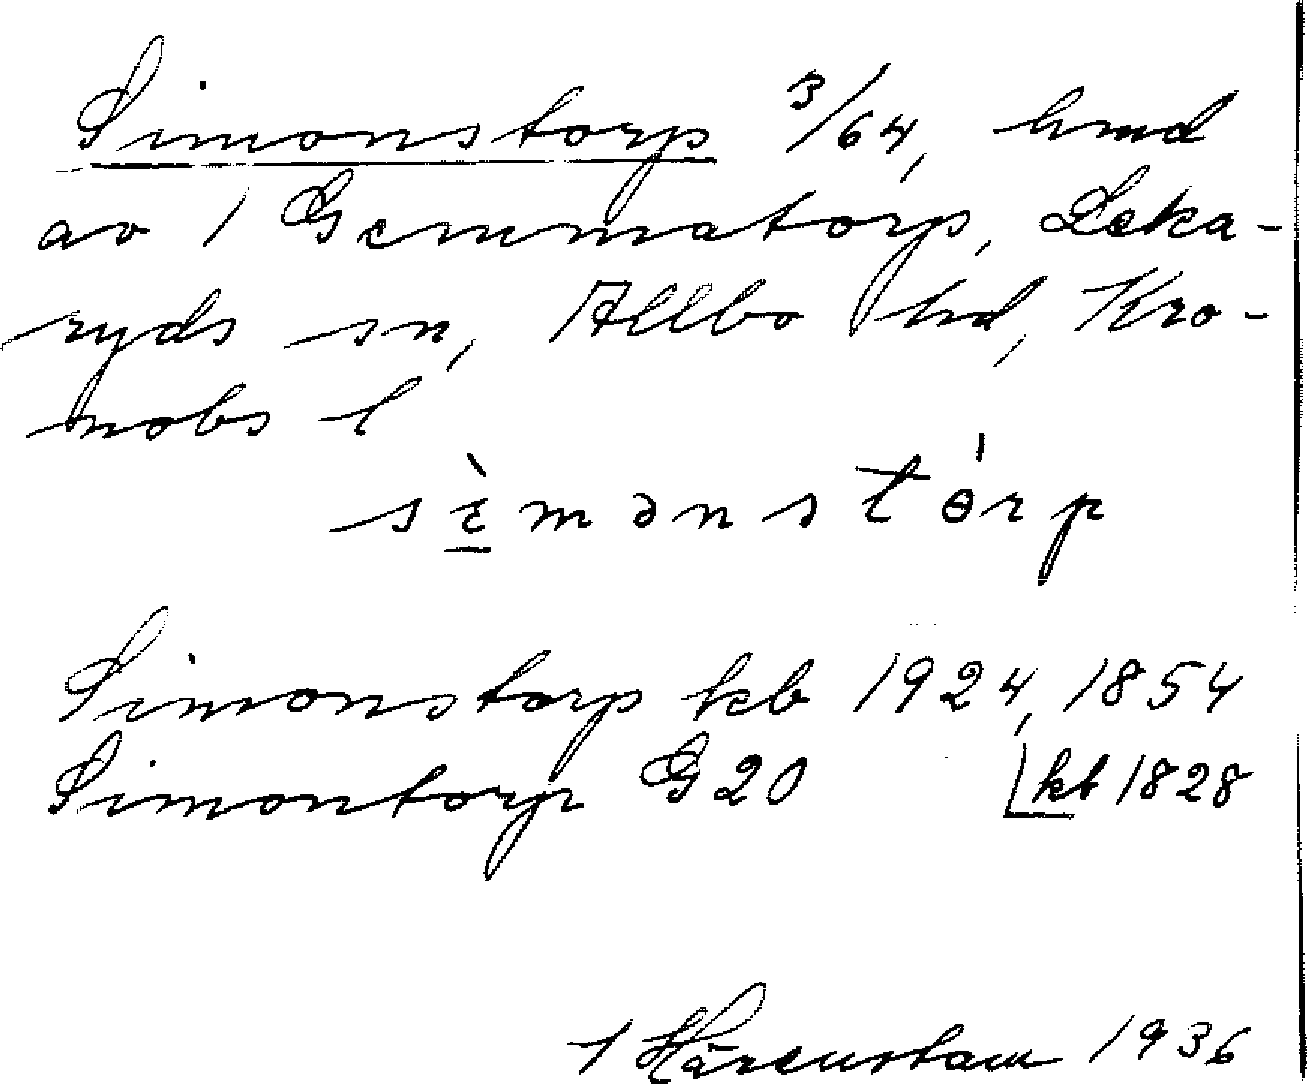 Simonstorp 3/64, hmd
av 1 Gemmatorp, Leka-
ryds sn, Allbo hd, Kro-
nobs l
sìmənstɵ́rp
Simonstorp kb 1924, 1854
Simontorp G20 ⌊kb 1828
1936